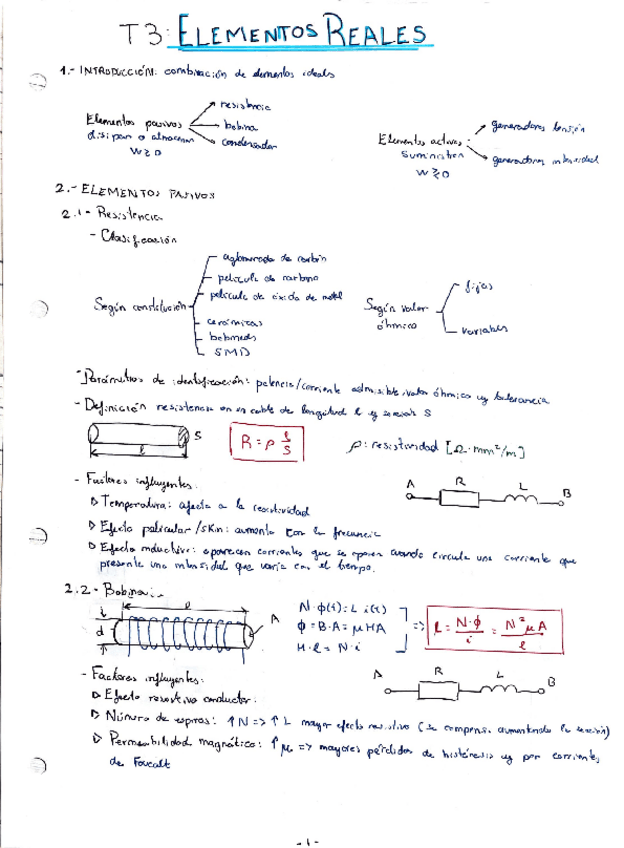 T3: ELEMENTOS REALES
1.- INTRODUCCIÓN: combinación de elementos ideales
resistencia
Elementos pasivos
bobina
disipan o almacenan
condensador
W≥0
generadores tensión
Elementos activos:
suministran
generadores intensidad
W≥0
2.- ELEMENTOS PASIVOS
2.1- Resistencia
- Clasificación
aglomerado de carbón
película de carbono
Según constitución
película de óxido de metal
cerámicas
bobinadas
SMD
Según valor óhmico
fijas
variables
- Parámetros de identificación: potencia/corriente admisible, valor óhmico y tolerancia
- Definición resistencia en un cable de longitud l y sección S
S
l
R = ρ l/S
ρ: resistividad [Ω·mm²/m]
- Factores influyentes:
A R L B
▷ Temperatura: afecta a la resistividad
▷ Efecto pelicular/skin: aumenta con la frecuencia
▷ Efecto inductivo: aparecen corrientes que se oponen cuando circula una corriente que
presente una intensidad que varía con el tiempo.
2.2- Bobina:
l
A
d
N·ϕ(t)=L i(t)
ϕ=B·A=μHA
H·l=N·i
=> L = N·ϕ/i = N²μA/l
- Factores influyentes:
A R L B
▷ Efecto resistivo conductor:
▷ Número de espiras: ↑N => ↑L mayor efecto resistivo (se compensa aumentando la sección)
▷ Permeabilidad magnética: ↑μ => mayores pérdidas de histéresis y por corrientes
de Foucalt
-1-